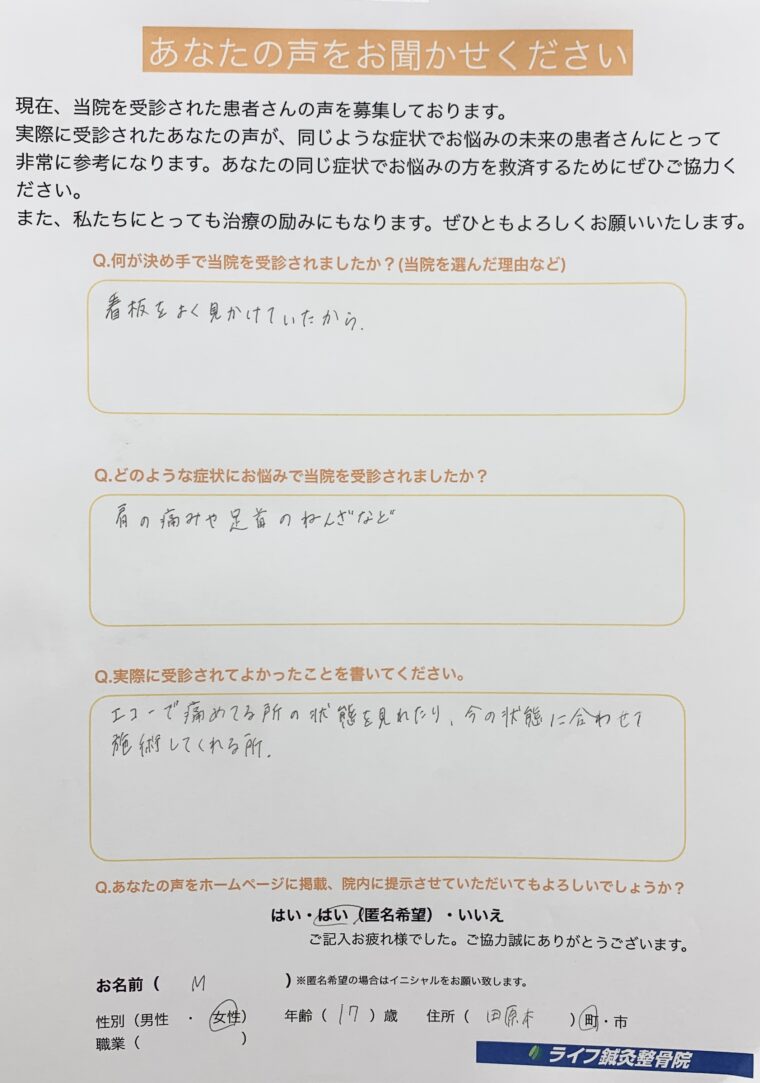 あなたの声をお聞かせください
現在、当院を受診された患者さんの声を募集しております。
実際に受診されたあなたの声が、同じような症状でお悩みの未来の患者さんにとって
非常に参考になります。あなたの同じ症状でお悩みの方を救済するためにぜひご協力く
ださい。
また、私たちにとっても治療の励みにもなります。ぜひともよろしくお願いいたします。
Q.何が決め手で当院を受診されましたか？(当院を選んだ理由など)
看板をよく見かけていたから.
Q.どのような症状にお悩みで当院を受診されましたか？
肩の痛みや足首のねんざなど
Q.実際に受診されてよかったことを書いてください。
エコーで痛めてる所の状態を見れたり、今の状態に合わせて
施術してくれる所.
Q.あなたの声をホームページに掲載、院内に提示させていただいてもよろしいでしょうか？
はい・はい（匿名希望）・いいえ
ご記入お疲れ様でした。ご協力誠にありがとうございます。
お名前（ M ）※匿名希望の場合はイニシャルをお願い致します。
性別（男性 ・ 女性） 年齢（ 17 ）歳 住所（ 田原本 ）町・市
職業（ ）
ライフ鍼灸整骨院